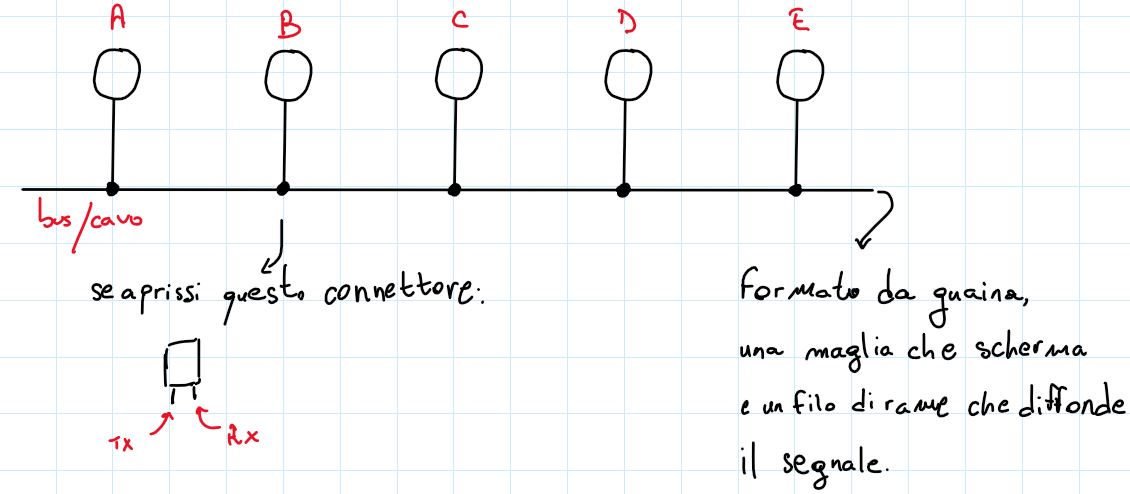 A B C D E
bus/cavo
se aprissi questo connettore:
TX
RX
formato da guaina,
una maglia che scherma
e un filo di rame che diffonde
il segnale.